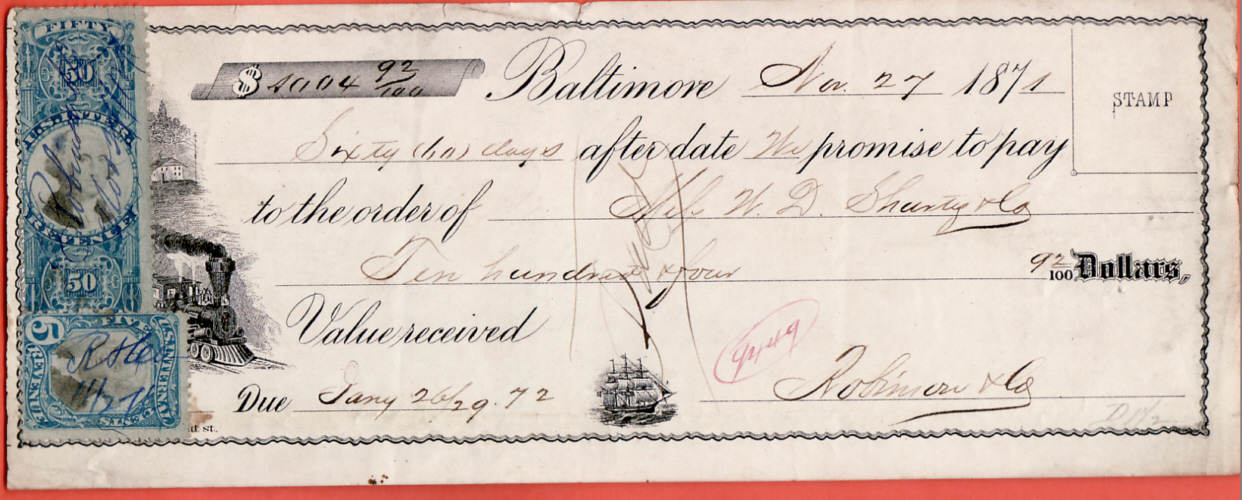 $ 1004 92/100 Baltimore Nov. 27 1871
STAMP
Sixty (60) days after date We promise to pay
to the order of W. D. & Co
Ten hundred & four 92/100 Dollars,
Value received
9449
Robinson & Co
Due Jany 26/29. 72
at st.
FIFTY
50
U.S. INTER.
REVENUE
50
5 FIVE
U.S. INTERNAL
REVENUE
CENTS
R & Co